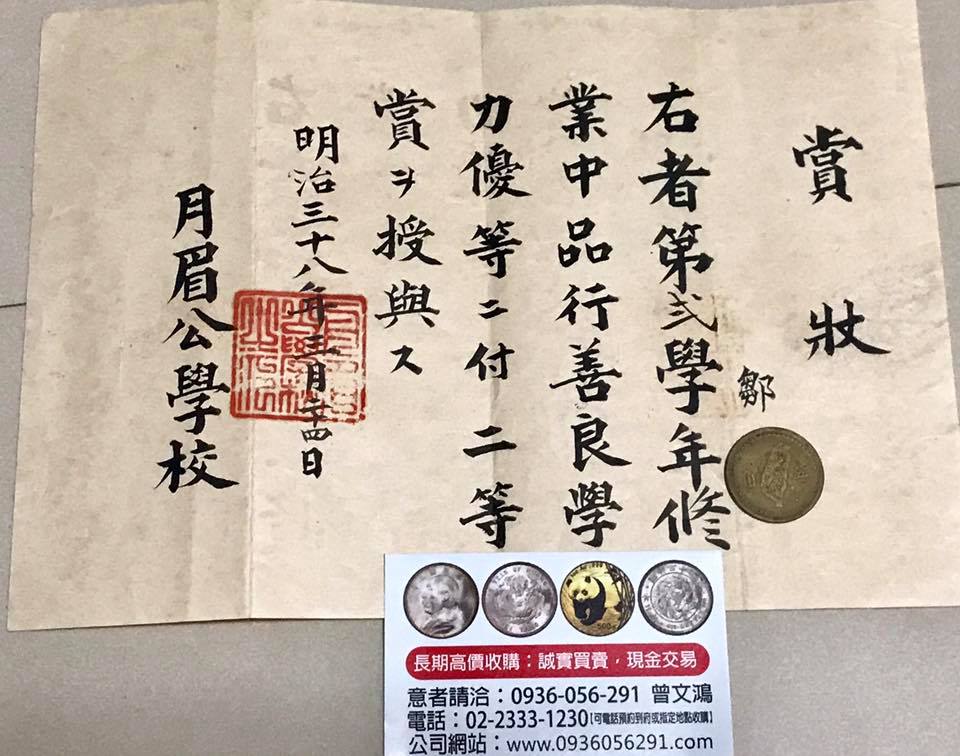 賞狀
鄒
右者第弍學年修
業中品行善良學
力優等ニ付二等
賞ヲ授與ス
明治三十八年三月二十四日
月眉公學校
長期高價收購：誠實買賣，現金交易
意者請洽：0936-056-291 曾文鴻
電話：02-2333-1230【可電話預約到府或指定地點收購】
公司網站：www.0936056291.com